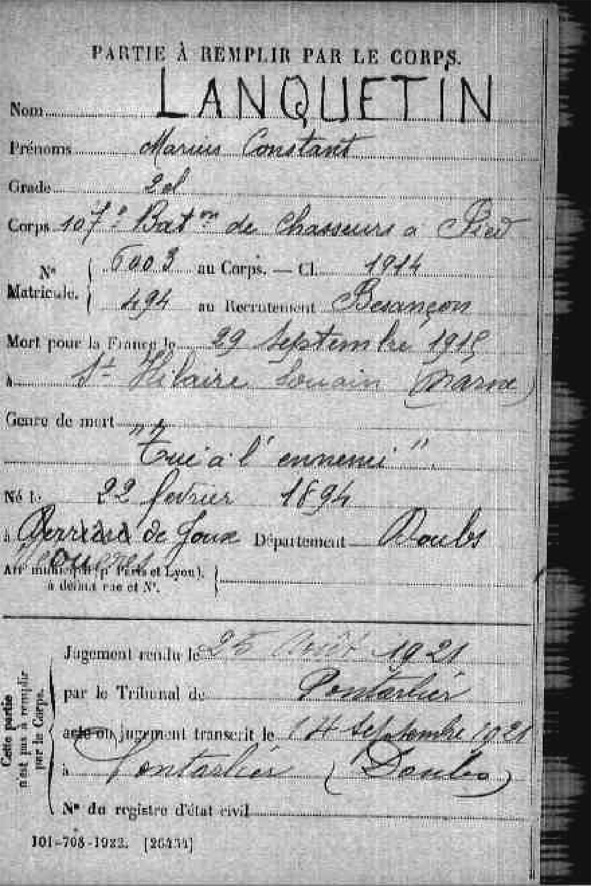 PARTIE À REMPLIR PAR LE CORPS.
Nom LANQUETIN
Prénoms Marius Constant
Grade 2cl
Corps 107e Baton de Chasseurs à Pied
No Matricule. 6003 au Corps. — Cl. 1914
494 au Recrutement Besançon
Mort pour la France le 29 Septembre 1915
à St Hilaire Souain (Marne)
Genre de mort
"Tué à l'ennemi".
Né le 22 février 1894
à de Joux Département Doubs
Arrt municipal (pr Paris et Lyon),
à défaut rue et No.
Cette partie n'est pas à remplir par le Corps.
Jugement rendu le 25 Août 1921
par le Tribunal de Pontarlier
acte ou jugement transcrit le 14 septembre 1921
à Pontarlier (Doubs)
No du registre d'état civil
101-708-1922. [26434]